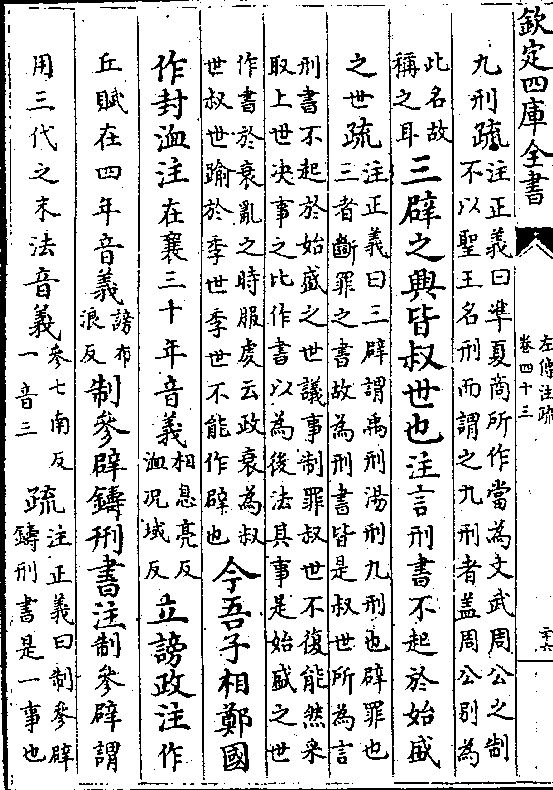 欽定四庫全書
左傳注疏
卷四十三
二十六
九刑疏
注正義曰準夏商所作當為文武周公之制
不以聖王名刑而謂之九刑者蓋周公别為
此名故
稱之耳
三辟之興皆叔世也注言刑書不起於始盛
之世疏
注正義曰三辟謂禹刑湯刑九刑也辟罪也
三者斷罪之書故為刑書皆是叔世所為言
刑書不起於始盛之世議事制罪叔世不復能然采
取上世决事之比作書以為後法其事是始盛之世
作書於衰亂之時服虔云政衰為叔
世叔世踰於季世季世不能作辟也
今吾子相鄭國
作封洫注在襄三十年音義
相息亮反
洫况域反
立謗政注作
丘賦在四年音義
謗布
浪反
制參辟鑄刑書注制參辟謂
用三代之末法音義
參七南反
一音三
疏
注正義曰制參辟
鑄刑書是一事也